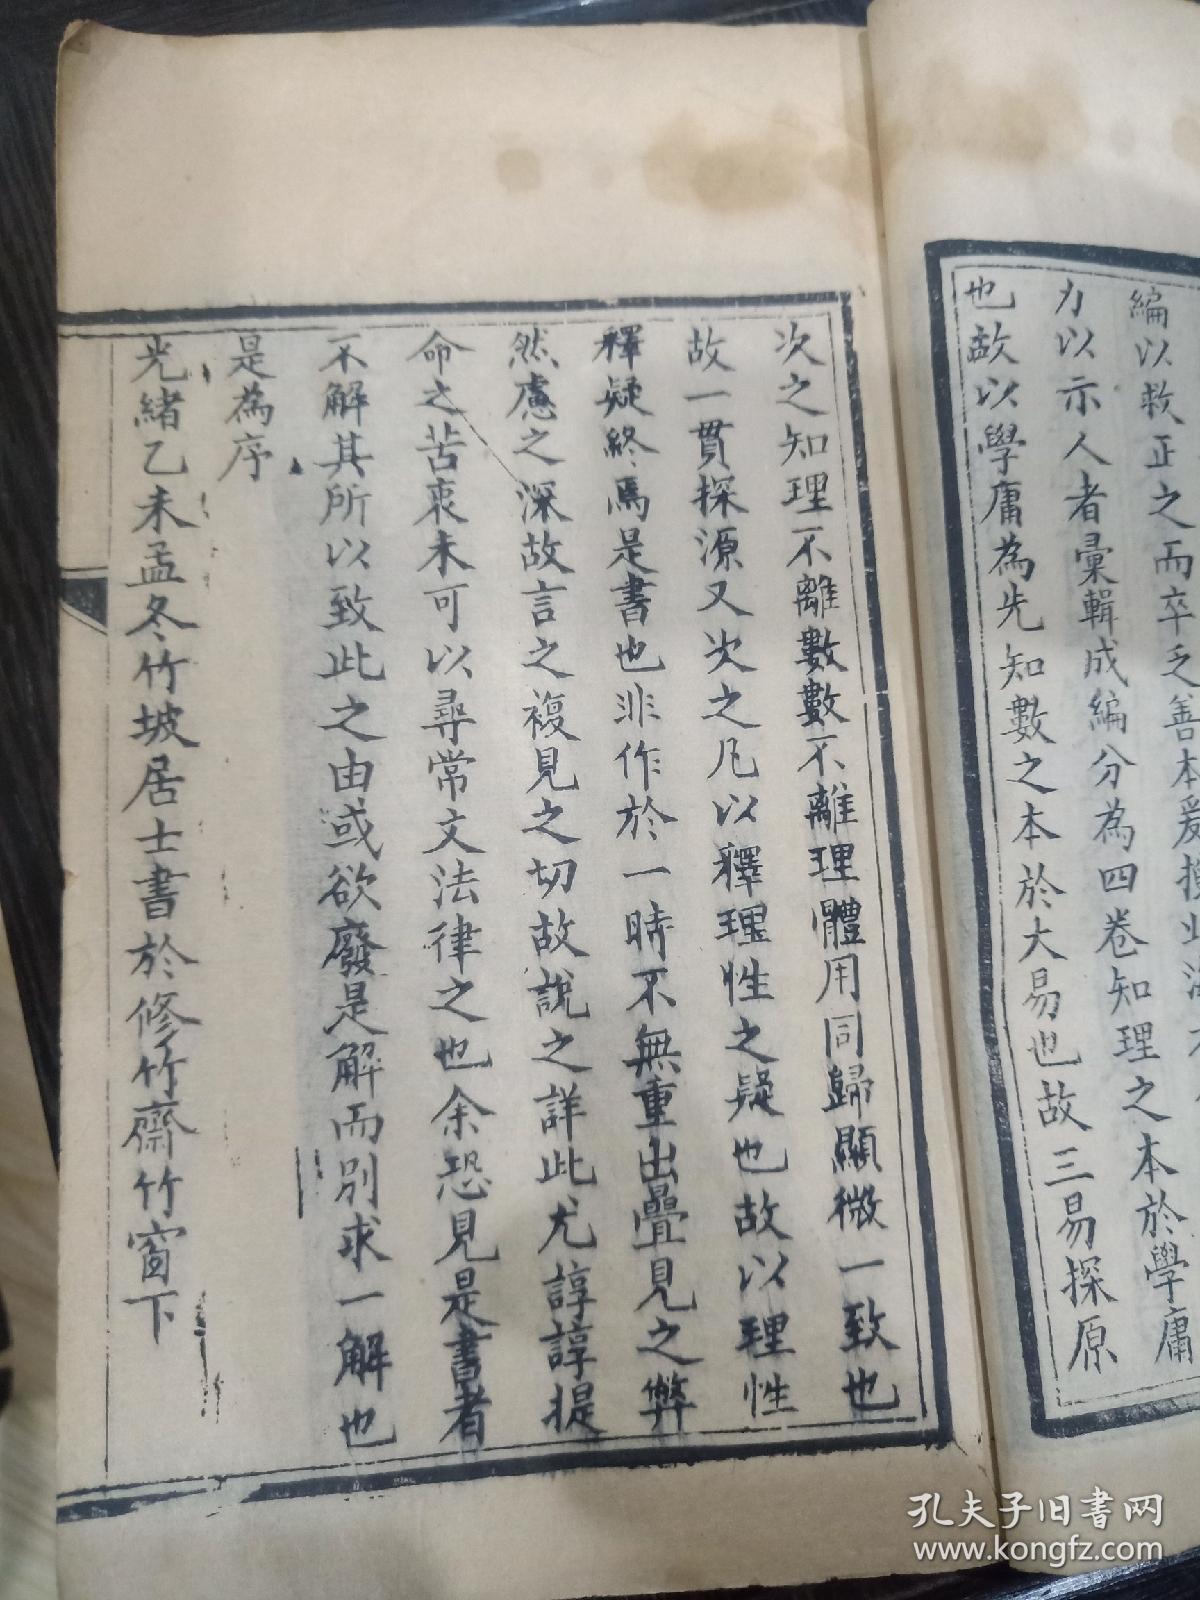 編以救正之而卒乏善本爰
力以示人者彙輯成編分為四卷知理之本於學庸
也故以學庸為先知數之本於大易也故三易探原
次之知理不離數數不離理體用同歸顯微一致也
故一貫探源又次之凡以釋理性之疑也故以理性
釋疑終焉是書也非作於一時不無重出疊見之弊
然慮之深故言之複見之切故說之詳此尤諄諄提
命之苦衷未可以尋常文法律之也余恐見是書者
不解其所以致此之由或欲廢是解而別求一解也
是為序
光緒乙未孟冬竹坡居士書於修竹齋竹窗下
孔夫子旧书网
www.kongfz.com